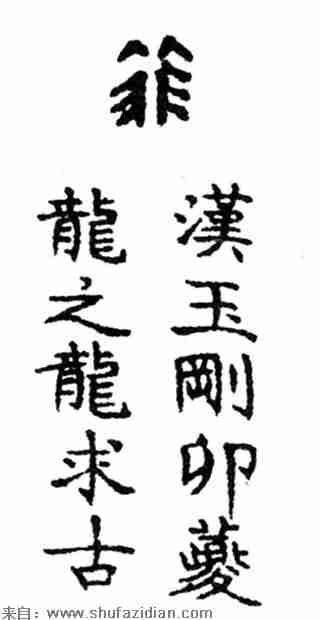 漢玉剛卯蘷
龍之龍求古
来自：www.shufazidian.com